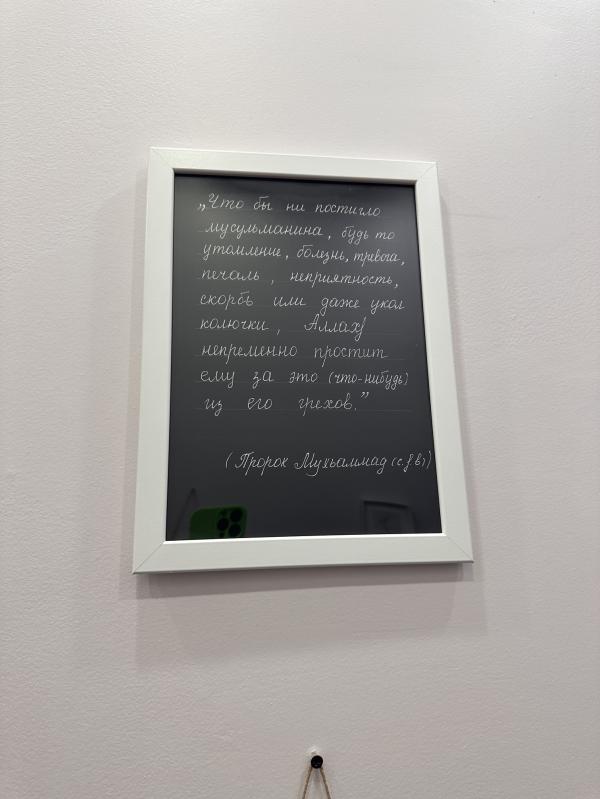 „Что бы ни постигло
мусульманина, будь то
утомление, болезнь, тревога,
печаль, неприятность,
скорбь или даже укол
колючки, Аллахӏ
непременно простит
ему за это (что-нибудь)
из его грехов.”
(Пророк Мухьаммад (с.ӏ в)